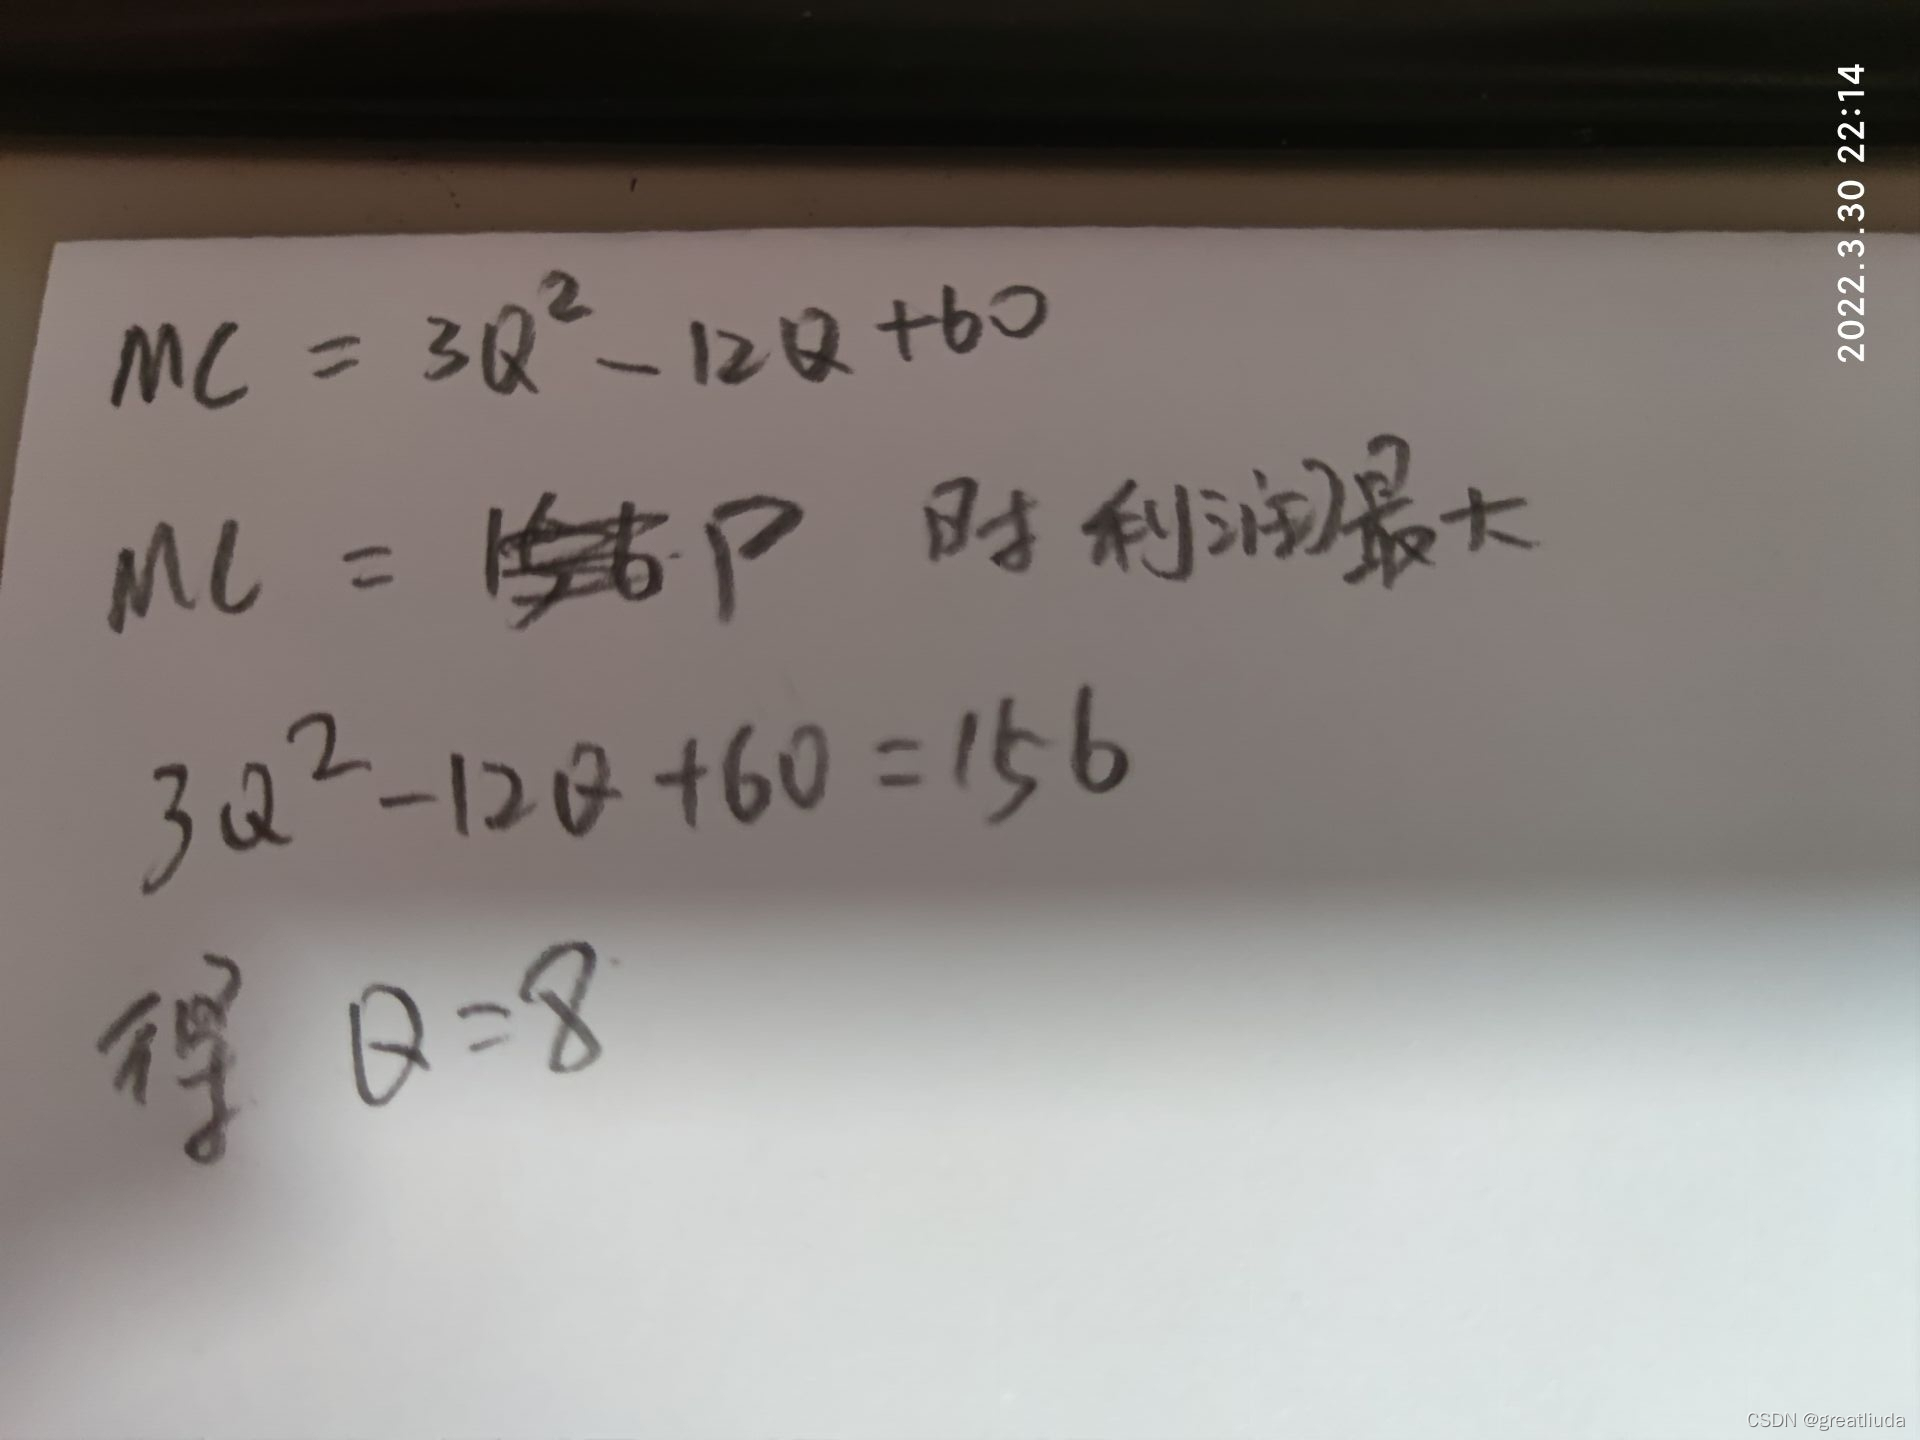 2022.3.30 22:14
MC = 3Q² - 12Q + 60
MC = P 时利润最大
3Q² - 12Q + 60 = 156
得 Q = 8
CSDN @greatliuda